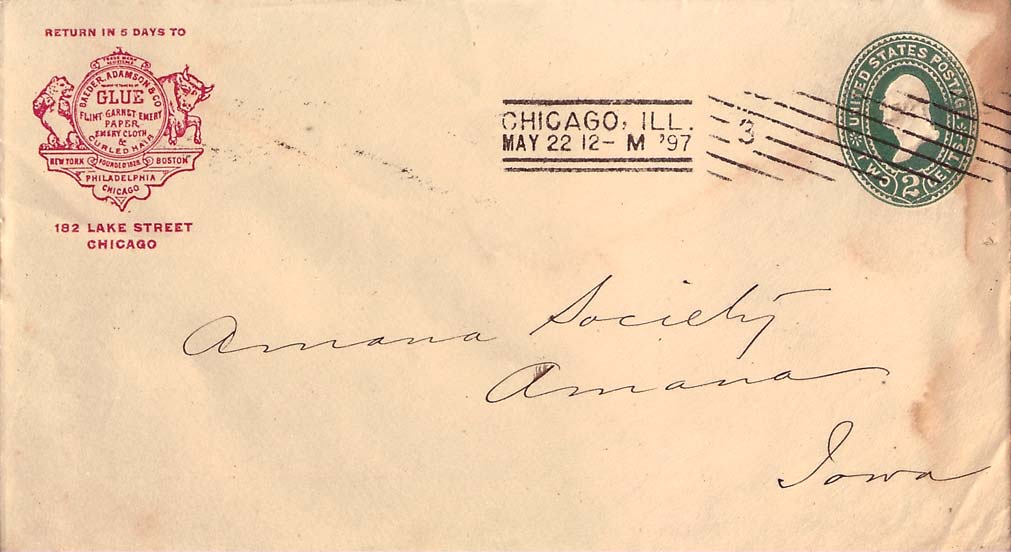 RETURN IN 5 DAYS TO
TRADE MARK
BAEDER, ADAMSON & CO
GLUE
FLINT GARNET EMERY
PAPER
EMERY CLOTH
&
CURLED HAIR
NEW YORK FOUNDED 1828 BOSTON
PHILADELPHIA
CHICAGO
182 LAKE STREET
CHICAGO
CHICAGO, ILL.
MAY 22 12-M '97
3
UNITED STATES POSTAGE
TWO 2 CENTS
Amana Society
Amana
Iowa